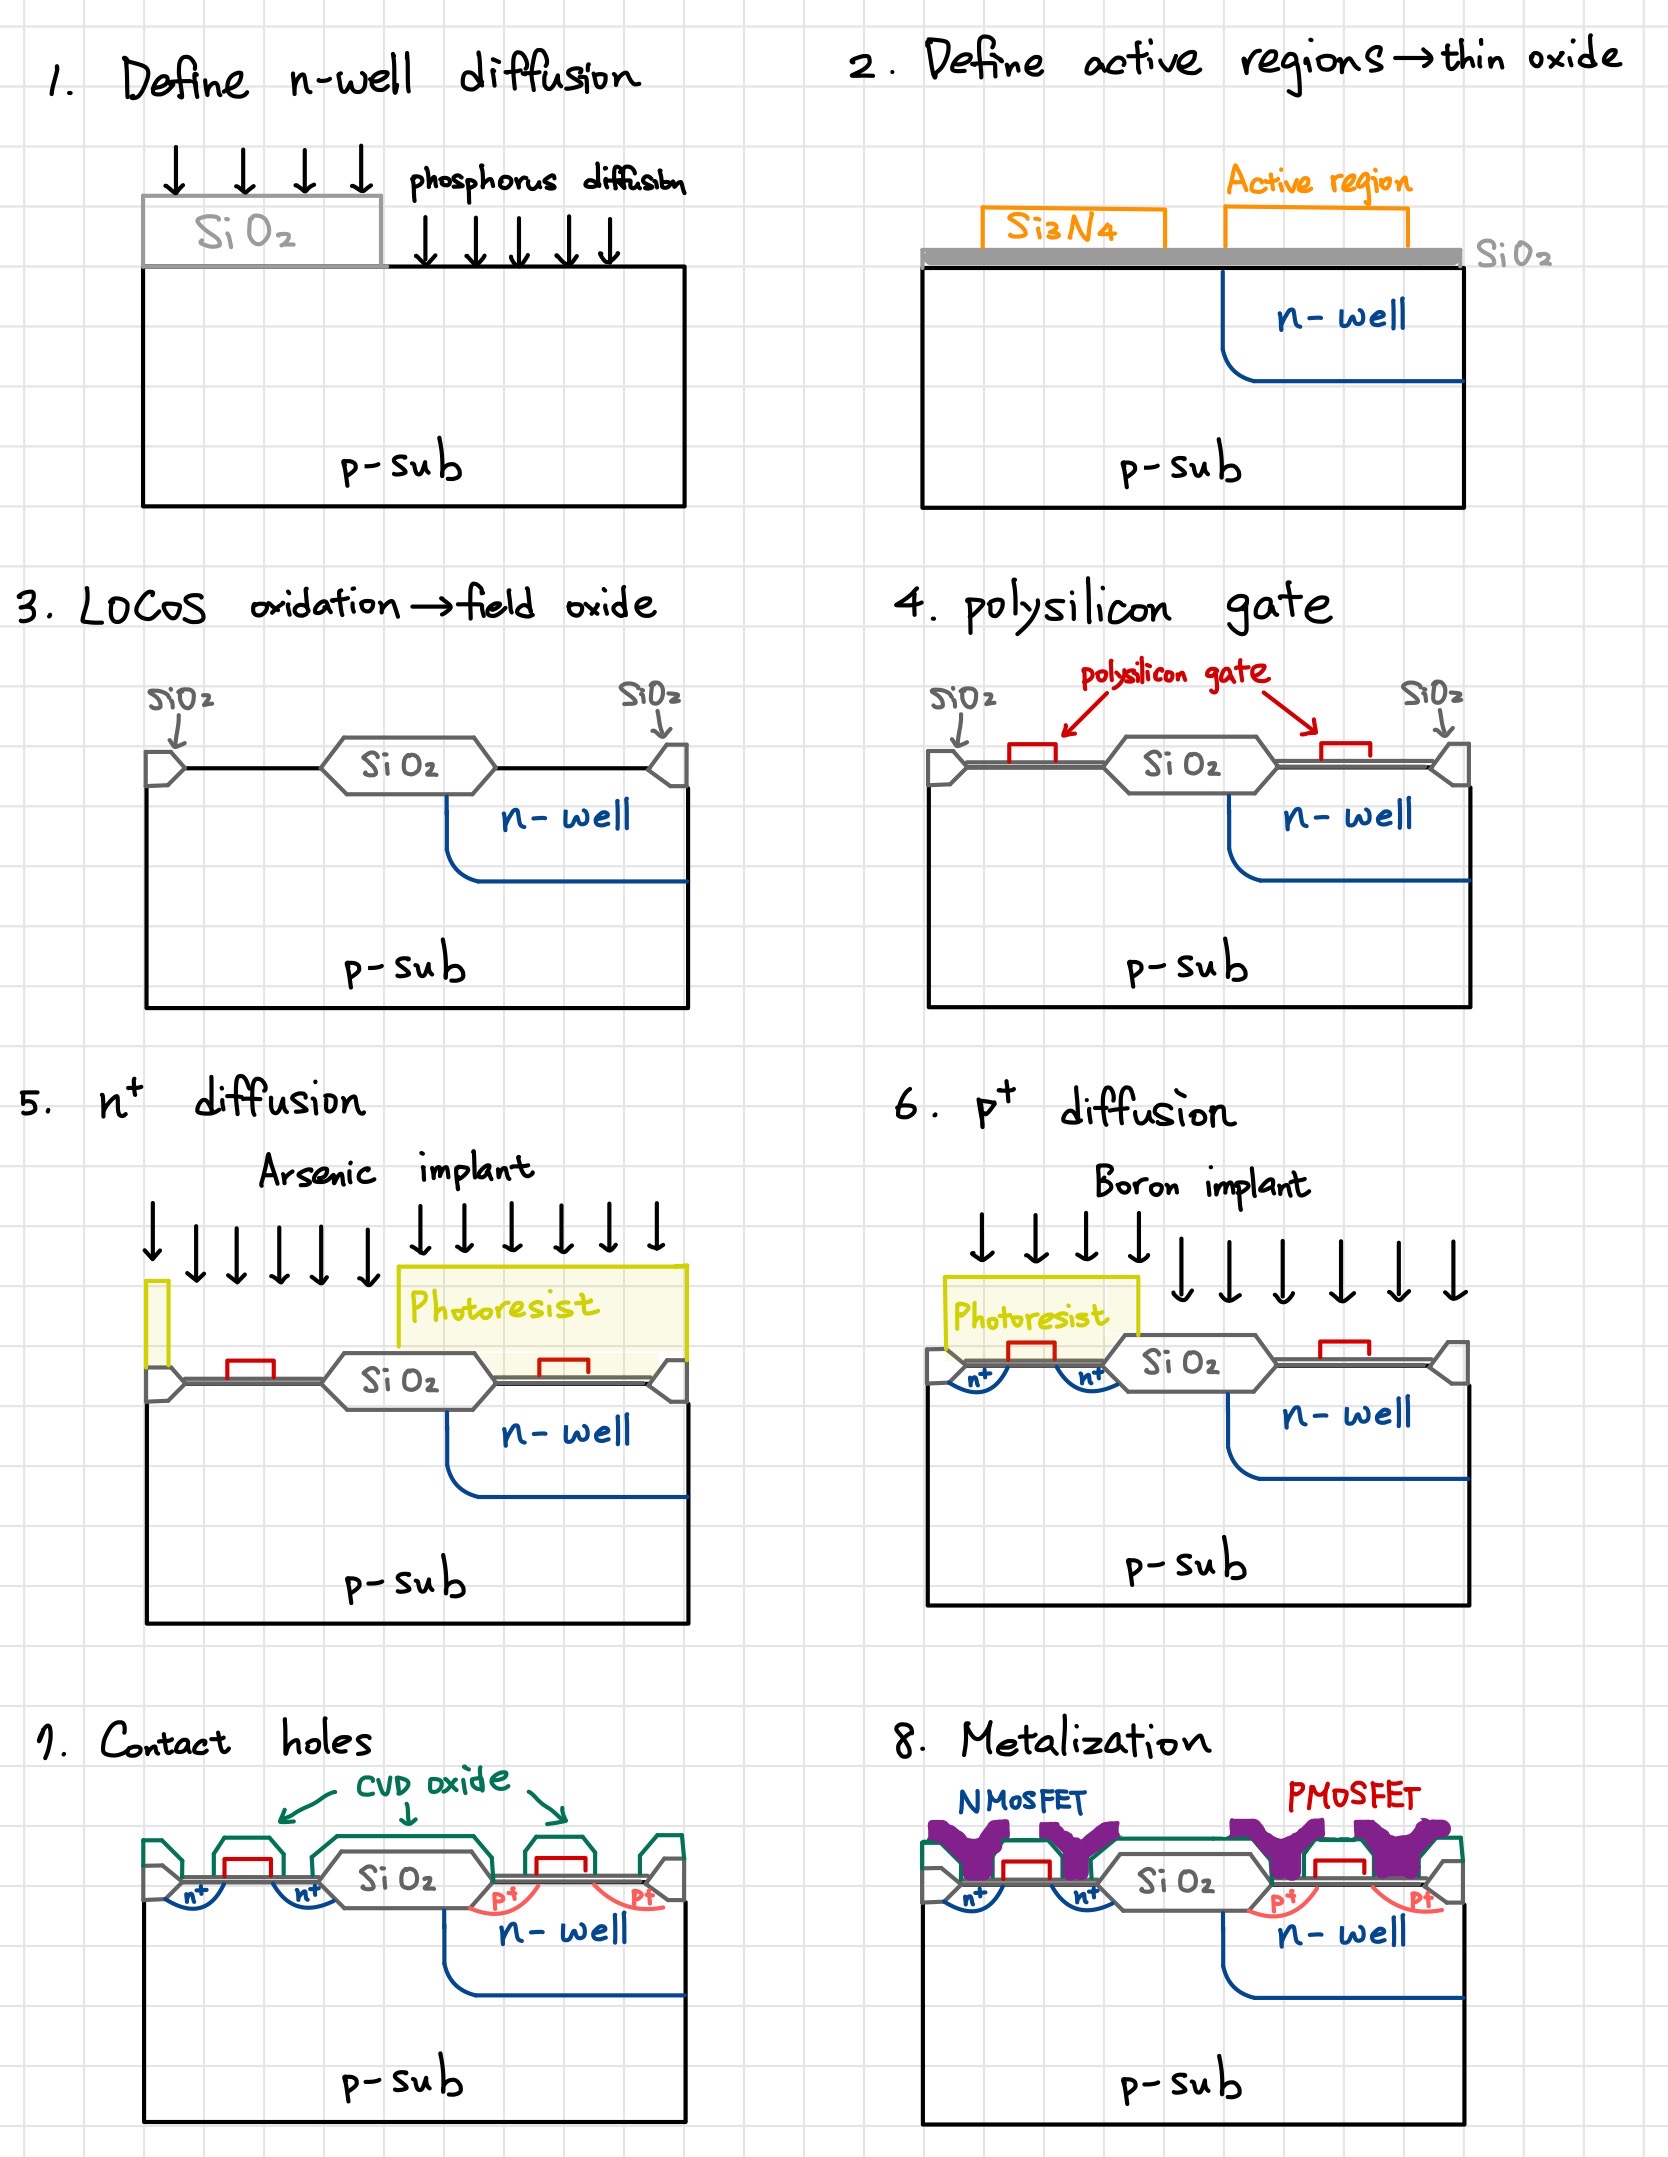 1. Define n-well diffusion
phosphorus diffusion
SiO2
p-sub
2. Define active regions → thin oxide
Active region
Si3N4
SiO2
n-well
p-sub
3. LOCOS oxidation → field oxide
SiO2
SiO2
SiO2
n-well
p-sub
4. polysilicon gate
polysilicon gate
SiO2
SiO2
SiO2
n-well
p-sub
5. n+ diffusion
Arsenic implant
Photoresist
SiO2
n-well
p-sub
6. p+ diffusion
Boron implant
Photoresist
SiO2
n+ n+
n-well
p-sub
7. Contact holes
CVD oxide
SiO2
n+ n+ p+ p+
n-well
p-sub
8. Metalization
NMOSFET PMOSFET
SiO2
n+ n+ p+ p+
n-well
p-sub